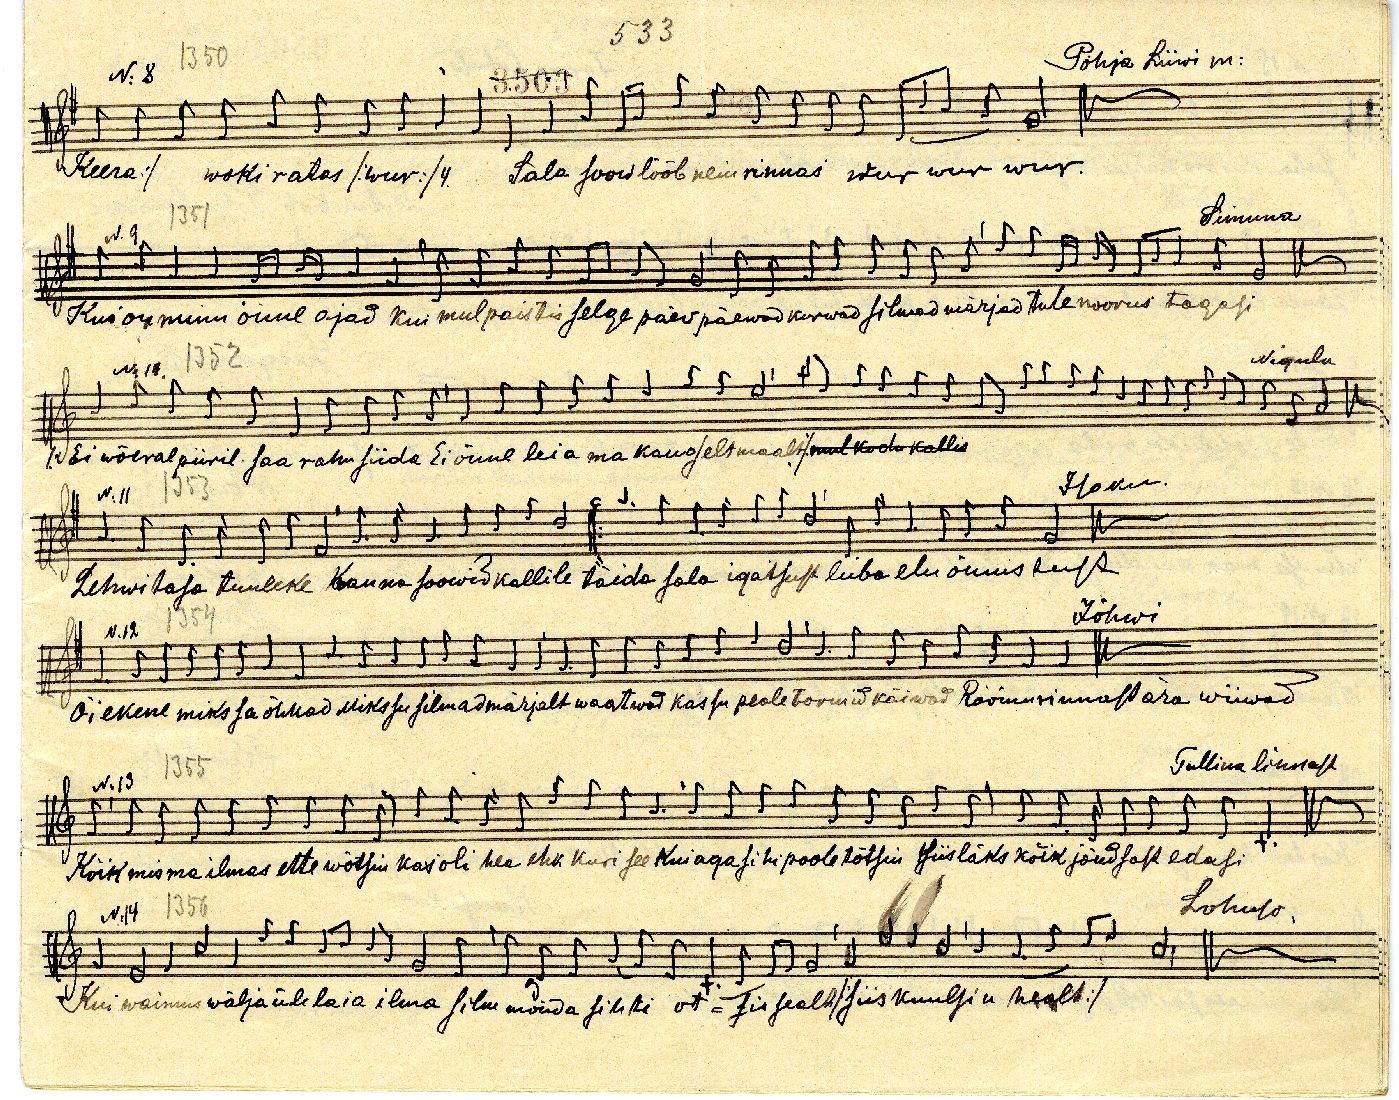 533
N: 8 1350 3503 Põhja Liiwi m:
Keera:/ woki ratas /:wur:/ 4. Sala soow lööb neiu rinnas wur wur wur.
N. 9 1351 Simuna
Kus on minu õnne ajad kui mul paistis selge päew päewad kurwad silmad märjad tule noorus tagasi
N. 10. 1352 Nigula
Ei wõeral piiril saa rahu süda Ei õnne leia ma kaugselt maalt:/ mul kodu kallis
N. 11 1353
Lehwita sa tuuleke Kanna soowid kallile täida sala igatsust luba elu õnnistust
N. 12 1354 Jõhwi
Oi ekene miks sa õhkad Miks su silmad märjalt waatwad kas su peale tormid käiwad Rõõmu rinnast ära wiiwad
N. 13 1355 Tallina linnast
Kõik mis ma ilmas ette wõtsin kas oli hea ehk kuri see Kui aga sihi poole tõtsin Siis läks kõik jõudsast edasi
N. 14 1356 Lohuso.
Kui waimus wälja üle laia ilma silm mõnda sihti otsin sealt /: siis kuulsin healt:/